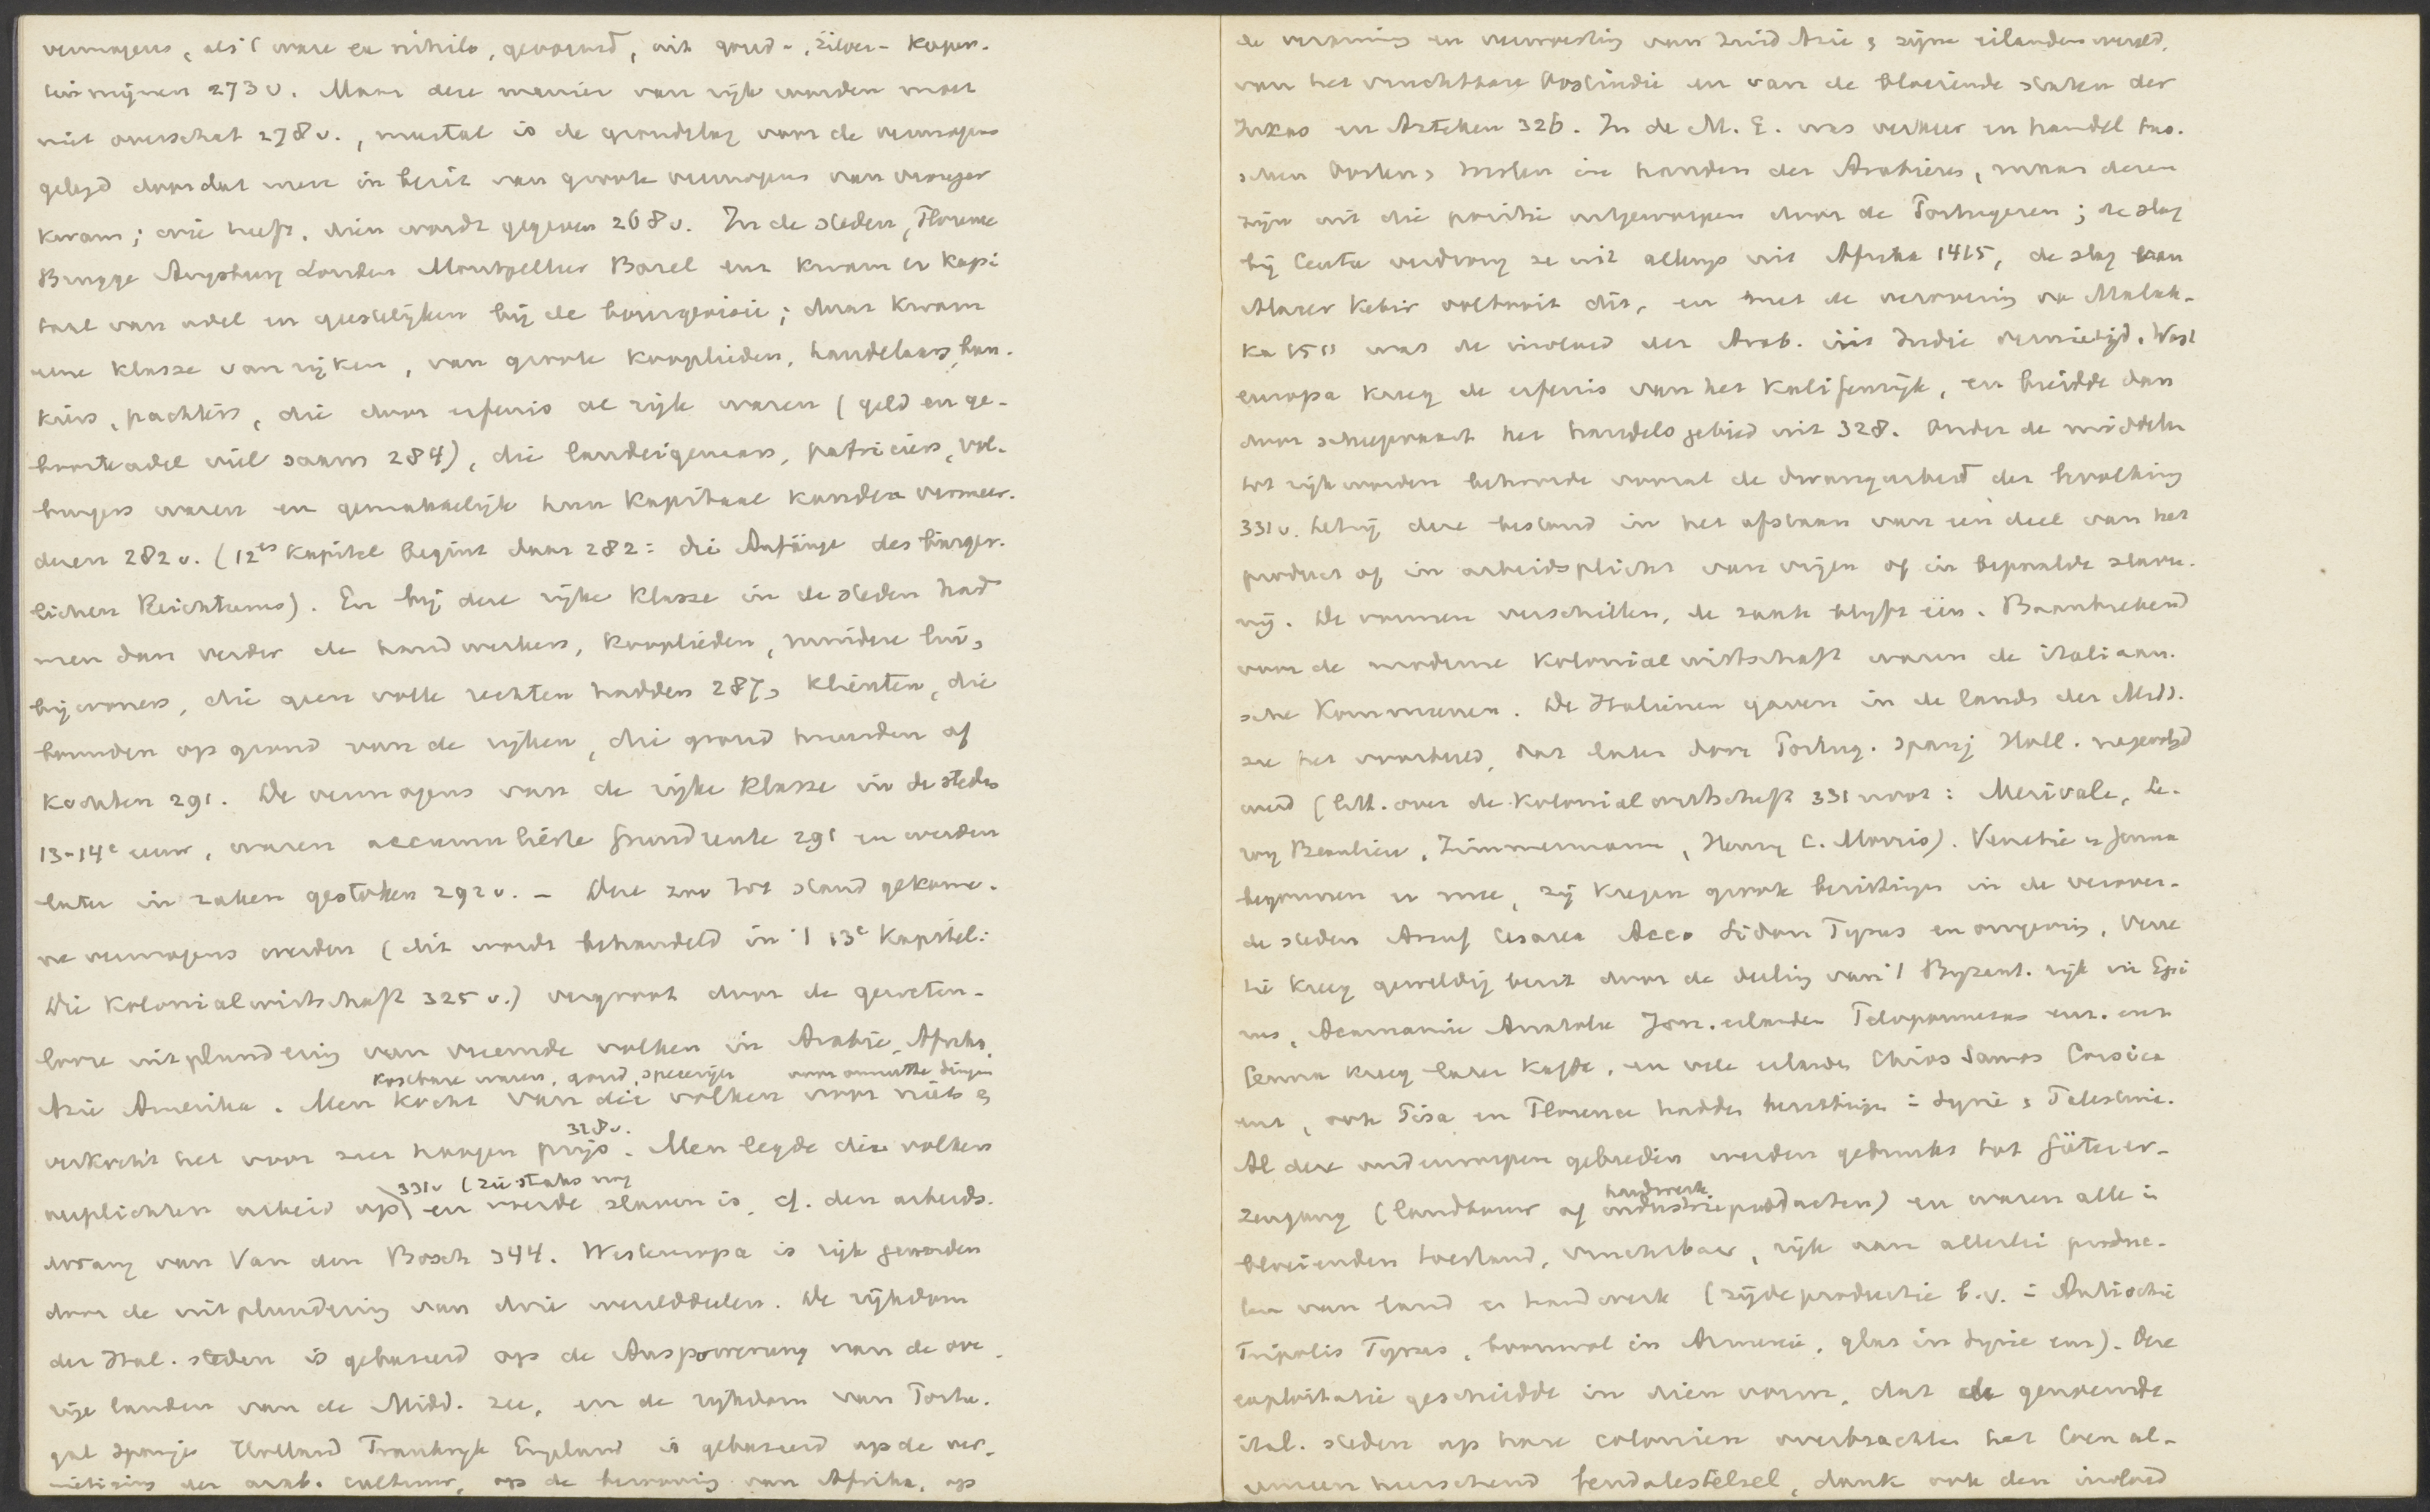 vermogens, als 't ware ex nihilo, gevormd, uit goud-, zilver- koper-
tin mijnen 273 v. Maar deze manier van rijk worden moet
niet overschat 278 v., meestal is de grondslag voor de vermogens
gelegd doordat men in bezit van groote vermogens van vroeger
kwam; wie heeft, dien wordt gegeven 268 v. In de steden, Florence
Brugge Augsburg Londen Montpellier Bazel enz kwam er kapi
taal van adel en geestelijken bij de bourgeoisie; daar kwam
eene klasse van rijken, van groote kooplieden, handelaars, ban-
kiers, pachters, die door erfenis al rijk waren (geld en ge-
boorteadel viel saam 284), die landeigenaars, patriciers, vol-
burgers waren en gemakkelijk hun kapitaal konden vermeer-
deren 282 v. (12es Kapitel begint daar 282: die Anfänge des bürger-
lichen Reichtums). En bij deze rijke klasse in de steden had
men dan verder de handwerkers, kooplieden, mindere lui,
bijwoners, die geen volle rechten hadden 287, klienten, die
bouwden op grond van de rijken, die grond huurden of
kochten 291. De vermogens van de rijke klasse in de steden
13-14e eeuw, waren accumulierte Grundrente 291 en werden
later in zaken gestoken 292 v. - Deze zoo tot stand gekome-
ne vermogens werden (dit wordt behandeld in 't 13e Kapitel:
Die Kolonialwirtschaft 325 v.) vergroot door de geweten-
looze uitplundering van vreemde volken in Arabie, Afrika,
kostbare waren, goud, specerijen voor onnutte dingen
Azie Amerika. Men kocht van die volken voor niets en
328 v.
verkocht het voor zeer hoogen prijs. Men legde die volken
331 v (zie straks nog
verplichten arbeid op) en voerde slaven in, cf. den arbeids-
dwang van Van den Bosch 344. Westeuropa is rijk geworden
door de uitplundering van drie werelddeelen. De rijkdom
der Ital. steden is gebaseerd op de Auspowerung van de ove
rige landen van de Midd. zee, en de rijkdom van Portu-
gal Spanje Holland Frankrijk Engeland is gebaseerd op de ver-
nietiging der arab. cultuur, op de berooving van Afrika, op
de verarming en verwoesting van Zuid Azie en zijne eilandenwereld,
van het vruchtbare Oostindie en van de bloeiende staten der
Inkas en Azteken 326. In de M. E. was verkeer en handel tus-
schen Oosten en Westen in handen der Arabieren, maar deze
zijn uit die positie uitgeworpen door de Portugezen; de slag
bij Ceuta verdrong ze uit uit Afrika 1415, de slag van
Alazer Kebir voltooit dit, en met de verovering van Malak-
ka 1511 was de invloed der Arab. in Indie vernietigd. West
europa kreeg de erfenis van het Kalifenrijk, en breidde dan
door scheepvaart het handelsgebied uit 328. Onder de middelen
tot rijk worden behoorde vooral de dwangarbeid der bevolking
331 v. hetzij deze bestond in het afstaan van een deel van het
product of in arbeidsplicht van vrijen of in bepaalde slaver-
nij. De vormen verschillen, de zaak blijft één. Baanbrekend
voor de moderne Kolonialwirtschaft waren de italiaan-
sche Kommunen. De Italianen gaven in de lands der Midd.
zee het voorbeeld, dat later door Portug. Spanj Holl. nagevolgd
werd (litt. over de Kolonialwirtschaft 331 noot: Merivale, Le-
roy Beaulieu, Zimmermann, Henry C. Morris). Venetie en Genua
begonnen er mee, zij kregen groote bezittingen in de verover-
de steden Arsuf Cesarea Acco Sidon Tyrus en omgeving, Vene
tie kreeg geweldig bezit door de deeling van 't Byzant. rijk in Epi
rus, Acarnanie Aetolie Jon. eilanden Peloponnesus enz. enz
Genua kreeg later Kaffa, en vele eilanden Chios Samos Corsica
enz, ook Pisa en Florence hadden bezittingen in Syrie en Palestina.
Al deze onderworpen gebieden werden gebruikt tot Güterer-
handwerk
zeugung (landbouw of industrieproducten) en waren alle in
bloeienden toestand, vruchtbaar, rijk aan allerlei produc-
ten van land en handwerk (zijdeproductie b.v. in Antiochie
Tripolis Tyrus, boomwol in Armenie, glas in Syrie enz). Deze
exploitatie geschiedde in dien vorm, dat de genoemde
ital. steden op hare colonien overbrachten het toen al-
gemeen heerschend feudalestelsel, dank ook den invloed